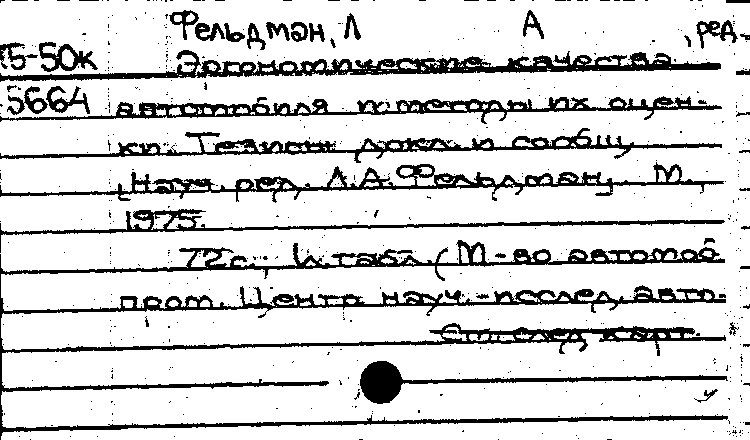 Фельдман, Л А , ред.
75-50к Эргономические качества
5664 автомобиля и методы их оцен-
ки. Тезисы докл. и сообщ
[Науч. ред. Л.А. Фельдман]. М.,
1975.
72с.; ил. табл. (М-во автомоб
пром. Центр науч.-исслед. авто-
См. след карт.